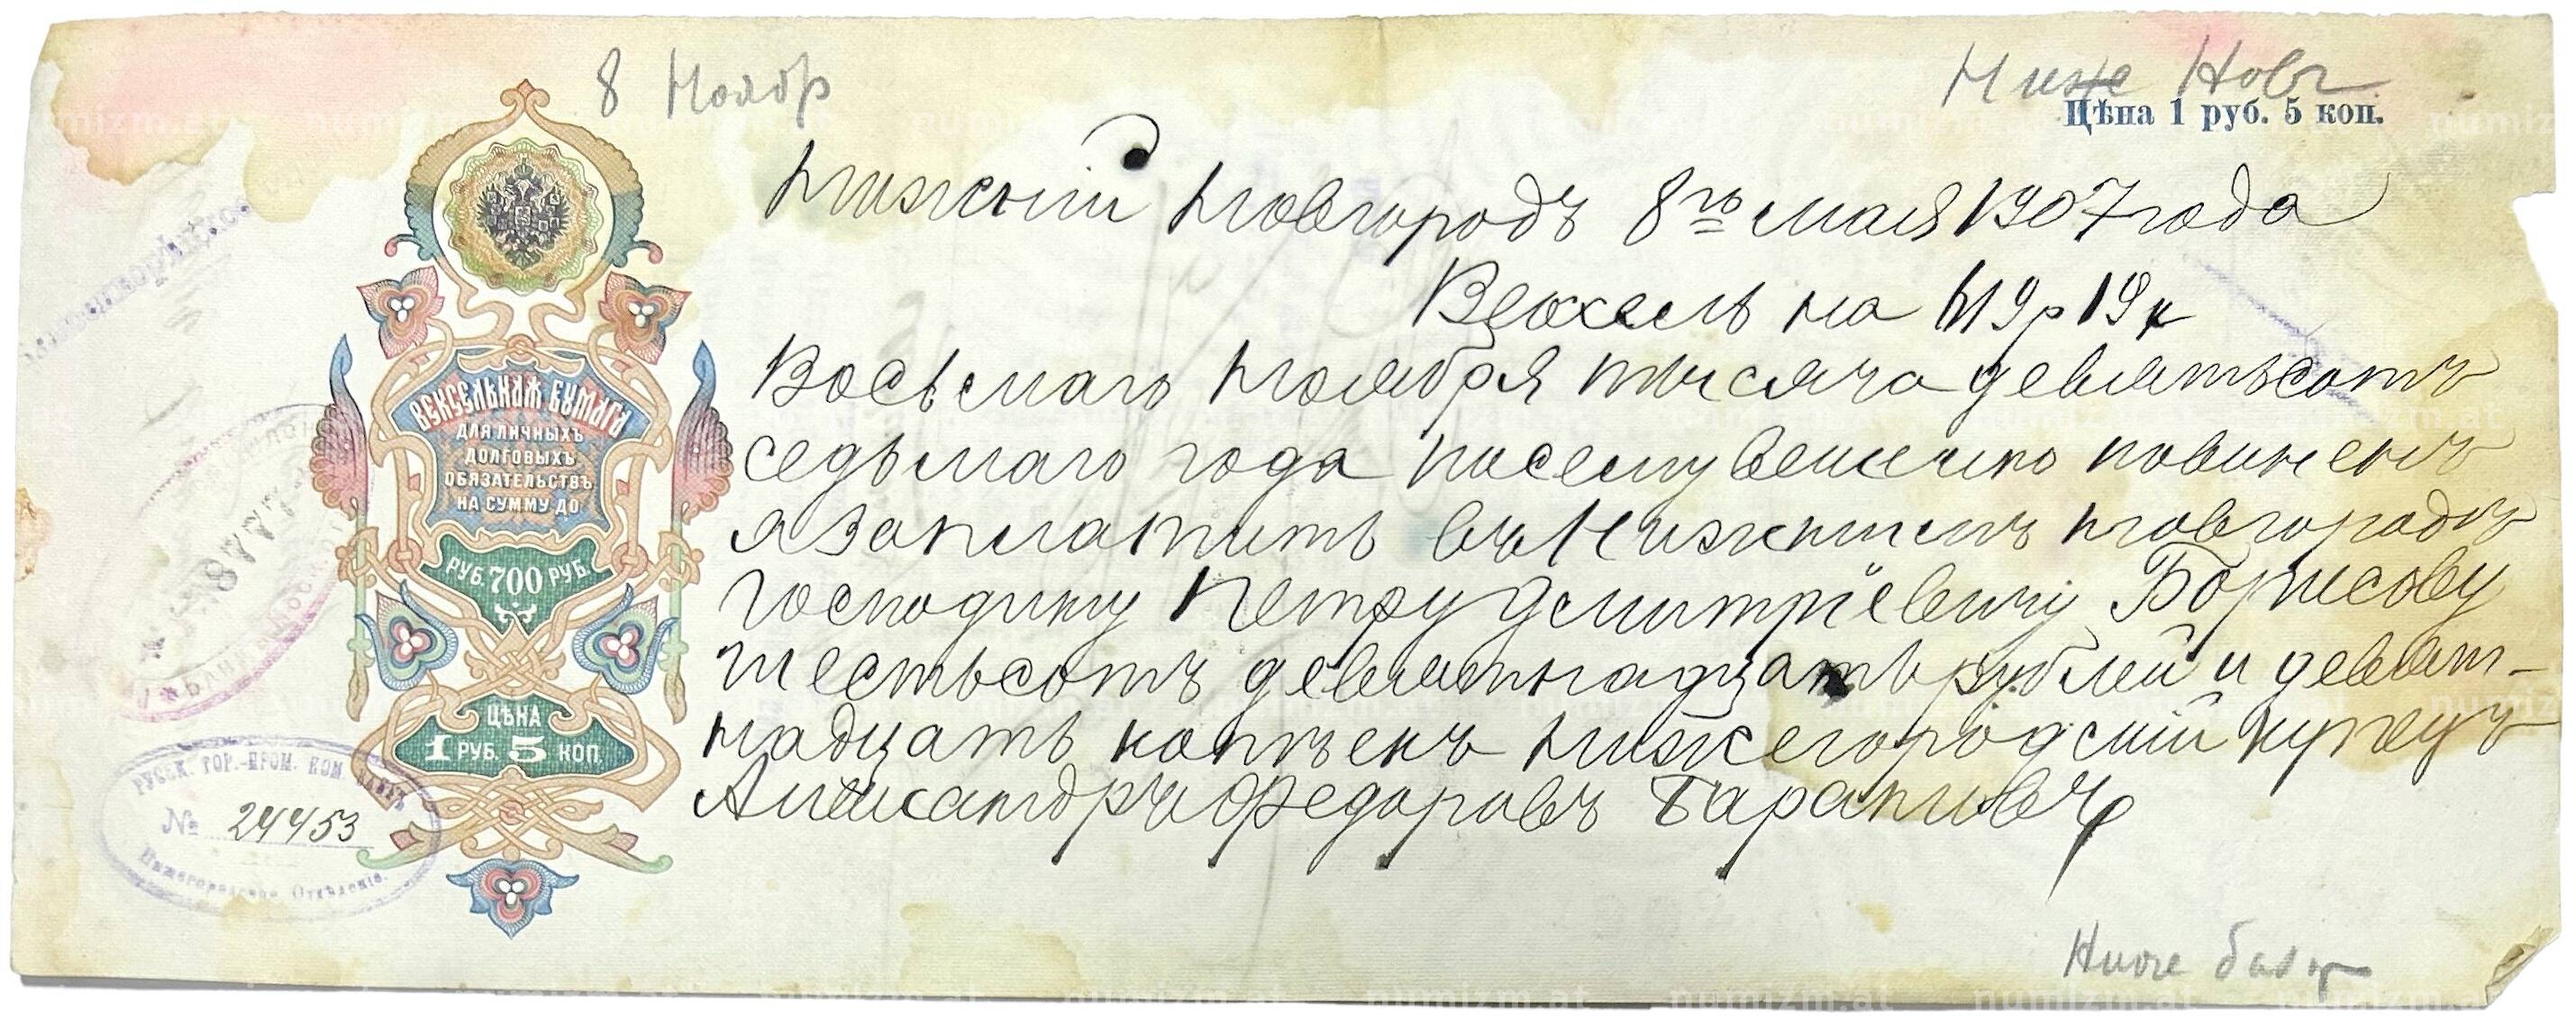 8 Ноябр
Ниже Новг
Цѣна 1 руб. 5 коп.
Нижній Новгородъ 8го мая 1907 года
Вексель на 619 р 19 к
Восьмаго Ноября тысяча девятьсотъ
седьмаго года по сему векселю повиненъ
я заплатить въ Нижнемъ Новгородѣ
Господину Петру Дмитріевичу Борисову
шестьсотъ девятнадцать рублей и девят-
надцать копѣекъ Нижегородскій купецъ
Александръ Федоровъ
ВЕКСЕЛЬНАЯ БУМАГА
ДЛЯ ЛИЧНЫХЪ
ДОЛГОВЫХЪ
ОБЯЗАТЕЛЬСТВЪ
НА СУММУ ДО
РУБ. 700 РУБ.
ЦѢНА
1 РУБ. 5 КОП.
18777
РУССК. ТОР.-ПРОМ. КОМ. БАНКЪ
№ 24453
Нижегородское Отдѣленіе.
numizm.at